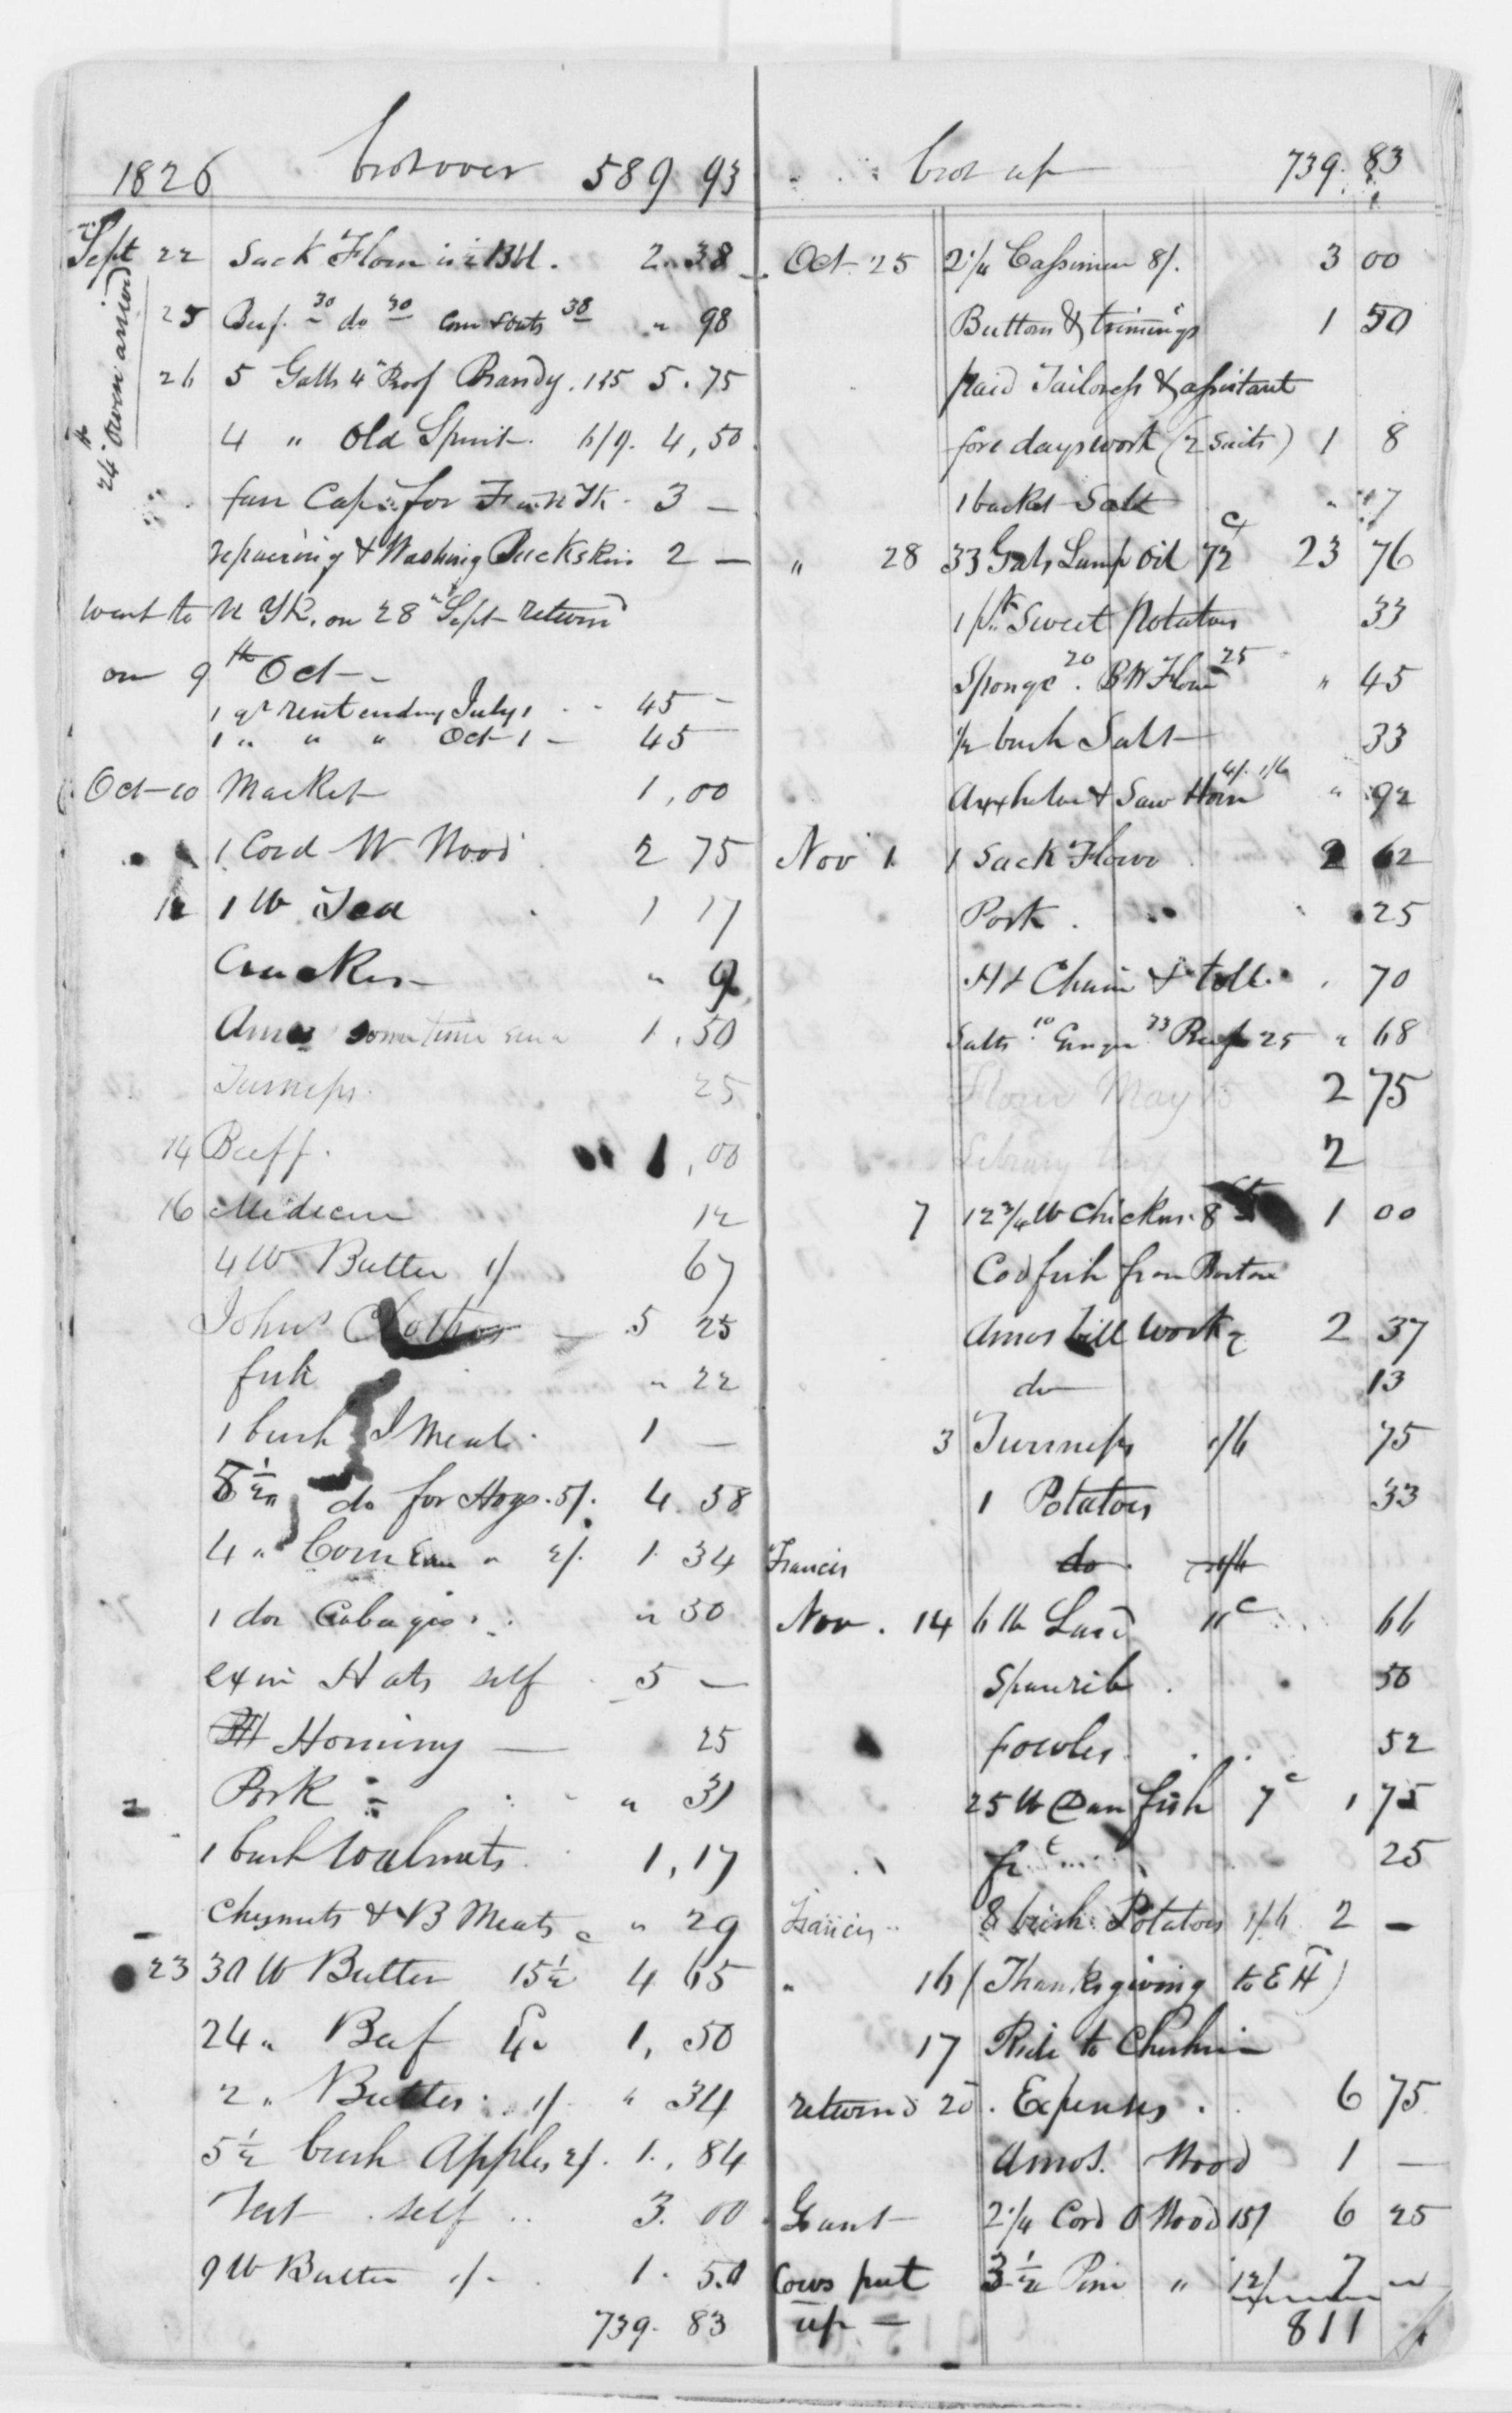 1826 brot over 589 93
Sept 22 Sack Flour 2. 38
24th Owen arrived
25 Beef 30 do 30 Corn & Oats 38 " 98
26 5 Galls 4th Proof Brandy 5. 75
4 " Old Spirit 6/9. 4, 50
fur Cap for 3 —
repairing & Washing Buckskin 2 —
went to N YK. on 28th Sept returnd
on 9th Oct —
1 qr rent ending July 1 45 —
1 " " " Oct 1 — 45
Oct 10 Market 1, 00
1 Cord W Wood 2 75
12 1 lb Tea 1 17
Crackers " 9
Amos some time 1. 50
Turneps. 25
14 Beeff. 1, 00
16 Medecin 12
4 lb Butter 1/ 67
Johns Clothes — 5 25
fish " 22
1 bush I Meal. 1 —
5 1/2 " do for Hogs. 5/. 4. 58
4 " Corn Ears " 2/. 1. 34
1 doz Cabages. " 50
Hats self 5 —
Hominy — 25
Pork " 31
1 bush Walnuts 1, 17
Chesnuts & B Meats " 29
23 30 lb Butter 15 1/2 4 65
24 " Beef 1, 50
2 " Butter 1/ " 34
5 1/2 bush Apples 2/. 1., 84
self 3. 00
9 lb Butter 1/. 1. 50
739. 83
brot up 739. 83
Oct 25 2 1/4 Cassimer 8/. 3 00
Buttons & trimmings 1 50
paid Tailoress & assistant
fore days work (2 Suits) 1 8
1 basket Salt " 17
" 28 33 Gals Lamp Oil 72 ct 23 76
1 pk Sweet Potatoes 33
Sponge 20. BW Flour 25 " 45
1/2 bush Salt 33
Axx helve & Saw Horse 4/. 1/6 " 92
Nov 1 1 Sack Flour 2 62
Pork. 25
Chain & toll. 70
Salts 10 Ginger 33 Beef 25 " 68
Flour May 2 75
Library 2
7 12 3/4 lb Chickens 8 1 00
Codfish from Boston
Amos bill Work 2 37
do 13
3 Turneps 1/6 75
1 Potatoes 33
Francis do 1/6
Nov. 14 6 lb Lard 11c 66
Sparerib. 50
fowles 52
25 lb Dun fish 7c 1 75
25
Francis 8 bush Potatoes 1/6 2 —
" 16 (Thanksgiving to E H)
17 Ride to Cheshire
returnd 20. Expenses. 6 75
Amos. Wood 1 —
Grant 2 1/4 Cord O Wood 15/ 6 25
Cows put 3 1/2 Pine " 12/ 7 "
up — 811